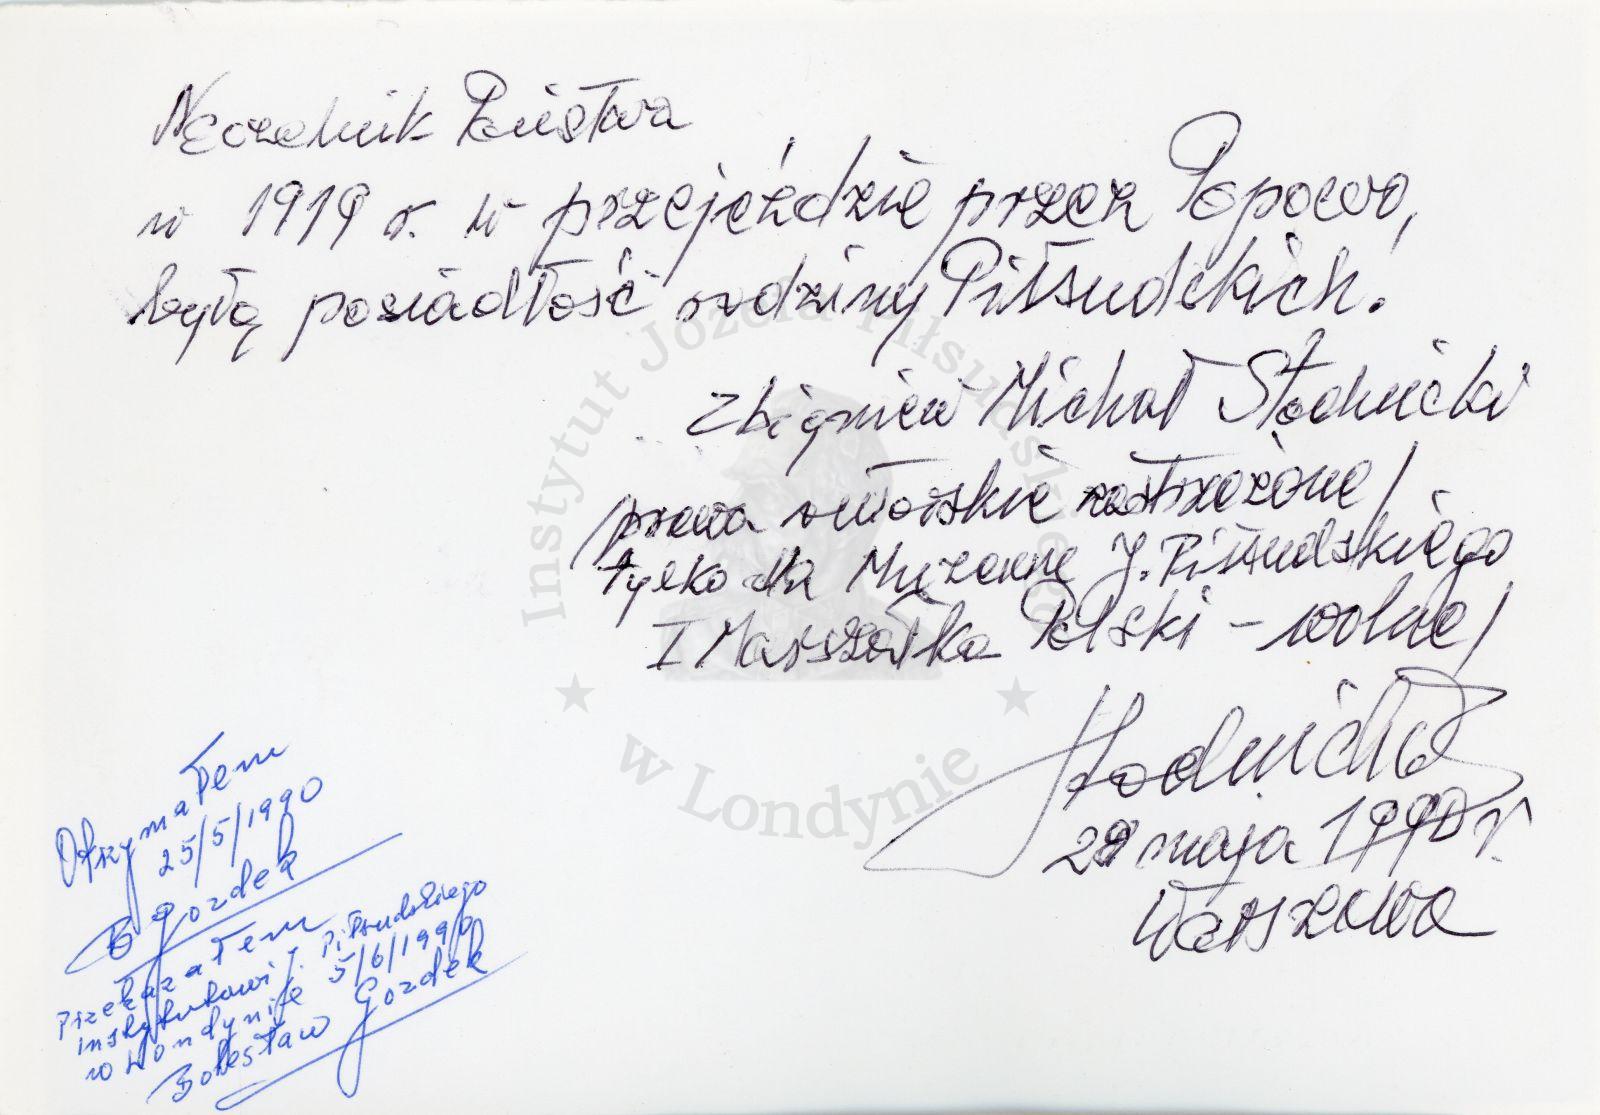 Naczelnik Państwa
w 1919 r. w przejeździe przez Popowo,
byłą posiadłość rodziny Piłsudskich.
Zbigniew Michał Stodnicki
/prawa autorskie zastrzeżone/
tylko dla Muzeum J. Piłsudskiego
I Marszałka Polski – wolne/
Stodnicki
maja 1990 r.
Warszawa
Otrzymałem
25/5/1990
B Gozdek
Przekazałem
instytutowi J. Piłsudskiego
w Londynie 5/6/1990
Bolesław Gozdek
Instytut Józefa Piłsudskiego
w Londynie